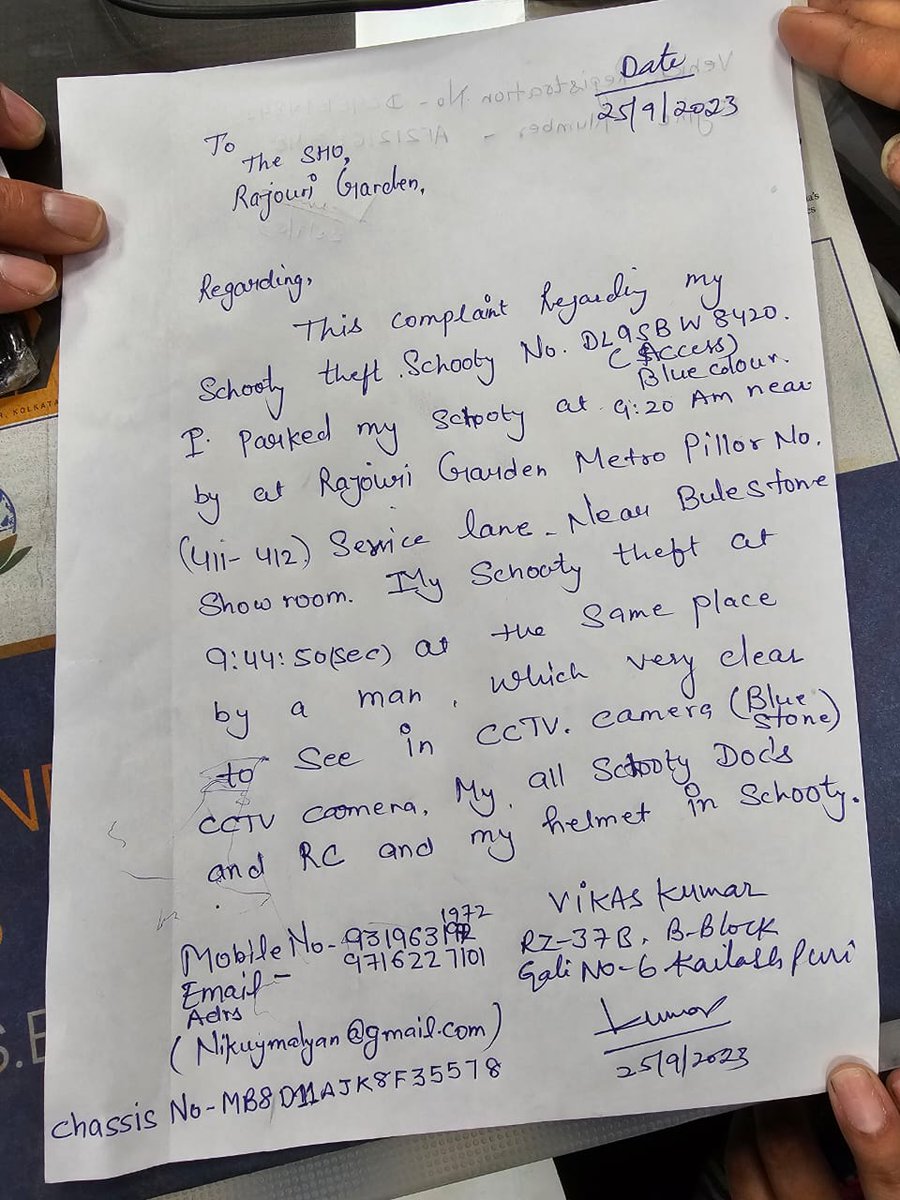 Date
25/9/2023
To
The SHO,
Rajouri Garden,
Regarding,
This complaint Regarding my
Schooty theft. Schooty No. DL9SBW8420.
(Access)
Blue colour.
I. Parked my Schooty at 9:20 Am near
by at Rajouri Garden Metro Pillor No.
(411-412) Service lane - Near Bulestone
Show room. My Schooty theft at
9:44:50(sec) at the same place
by a man, which very clear
to see in CCTV. camera (Blue
Stone)
CCTV camera, My, all Schooty Doc's
and RC and my helmet in Schooty.
Vikas Kumar
RZ-37B, B-Block
Gali No-6 Kailash Puri
Kumar
25/9/2023
Mobile No - 9319631972
9716227101
Email -
Adrs
(Nikuymalyan@gmail.com)
Chassis No - MB8D11AJK8F35578
R, KOLKATA